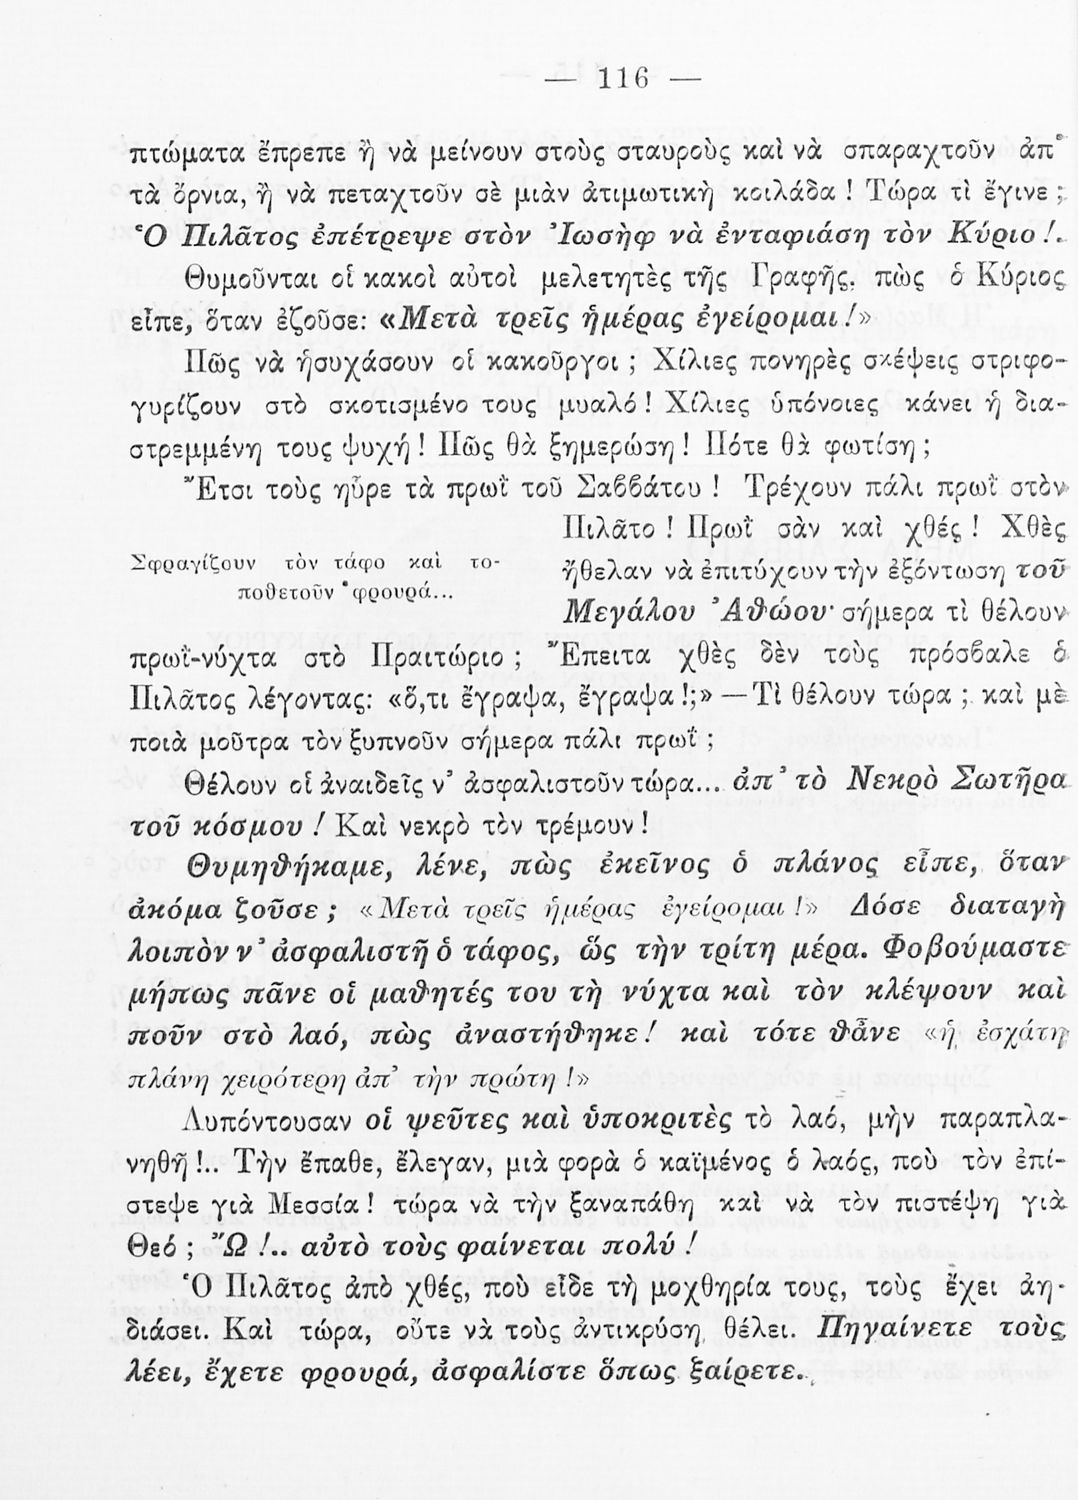 — 116 —
πτώματα ἔπρεπε ἢ νὰ μείνουν στοὺς σταυροὺς καὶ νὰ σπαραχτοῦν ἀπ᾽
τὰ ὄρνια, ἢ νὰ πεταχτοῦν σὲ μιὰν ἀτιμωτικὴ κοιλάδα ! Τώρα τὶ ἔγινε ;
Ὁ Πιλᾶτος ἐπέτρεψε στὸν Ἰωσὴφ νὰ ἐνταφιάση τὸν Κύριο !..
Θυμοῦνται οἱ κακοὶ αὐτοὶ μελετητὲς τῆς Γραφῆς, πὼς ὁ Κύριος
εἶπε, ὅταν ἐζοῦσε: «Μετὰ τρεῖς ἡμέρας ἐγείρομαι !»
Πῶς νὰ ἡσυχάσουν οἱ κακοῦργοι ; Χίλιες πονηρὲς σκέψεις στριφο-
γυρίζουν στὸ σκοτισμένο τους μυαλό ! Χίλιες ὑπόνοιες κάνει ἡ δια-
στρεμμένη τους ψυχή ! Πῶς θὰ ξημερώση ! Πότε θὰ φωτίση ;
Ἔτσι τοὺς ηὗρε τὰ πρωῒ τοῦ Σαββάτου ! Τρέχουν πάλι πρωῒ στὸν
Πιλᾶτο ! Πρωῒ σὰν καὶ χθές ! Χθὲς
Σφραγίζουν τὸν τάφο καὶ το-
ποθετοῦν φρουρά...
ἤθελαν νὰ ἐπιτύχουν τὴν ἐξόντωση τοῦ
Μεγάλου Ἀθώου· σήμερα τὶ θέλουν
πρωῒ-νύχτα στὸ Πραιτώριο ; Ἔπειτα χθὲς δὲν τοὺς πρόσβαλε ὁ
Πιλᾶτος λέγοντας: «ὅ,τι ἔγραψα, ἔγραψα !;» — Τὶ θέλουν τώρα ; καὶ μὲ
ποιὰ μοῦτρα τὸν ξυπνοῦν σήμερα πάλι πρωῒ ;
Θέλουν οἱ ἀναιδεῖς ν᾽ ἀσφαλιστοῦν τώρα... ἀπ᾽ τὸ Νεκρὸ Σωτῆρα
τοῦ κόσμου ! Καὶ νεκρὸ τὸν τρέμουν !
Θυμηθήκαμε, λένε, πὼς ἐκεῖνος ὁ πλάνος εἶπε, ὅταν
ἀκόμα ζοῦσε ; «Μετὰ τρεῖς ἡμέρας ἐγείρομαι !» Δόσε διαταγὴ
λοιπὸν ν᾽ ἀσφαλιστῆ ὁ τάφος, ὣς τὴν τρίτη μέρα. Φοβούμαστε
μήπως πᾶνε οἱ μαθητές του τὴ νύχτα καὶ τὸν κλέψουν καὶ
ποῦν στὸ λαό, πὼς ἀναστήθηκε ! καὶ τότε θἆνε «ἡ ἐσχάτη
πλάνη χειρότερη ἀπ᾽ τὴν πρώτη !»
Λυπόντουσαν οἱ ψεῦτες καὶ ὑποκριτὲς τὸ λαό, μὴν παραπλα-
νηθῆ !.. Τὴν ἔπαθε, ἔλεγαν, μιὰ φορὰ ὁ καϊμένος ὁ λαός, ποὺ τὸν ἐπί-
στεψε γιὰ Μεσσία ! τώρα νὰ τὴν ξαναπάθη καὶ νὰ τὸν πιστέψη γιὰ
Θεό ; Ὢ !.. αὐτὸ τοὺς φαίνεται πολύ !
Ὁ Πιλᾶτος ἀπὸ χθές, ποὺ εἶδε τὴ μοχθηρία τους, τοὺς ἔχει ἀη-
διάσει. Καὶ τώρα, οὔτε νὰ τοὺς ἀντικρύση θέλει. Πηγαίνετε τοὺς
λέει, ἔχετε φρουρά, ἀσφαλίστε ὅπως ξαίρετε..